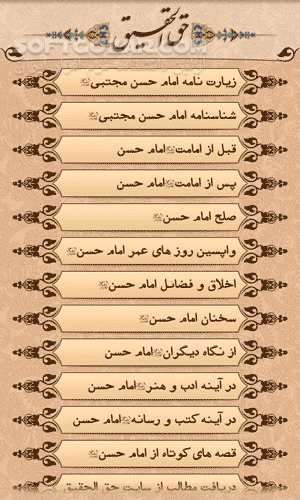 SOFTGOZAR.COM
حق الحقیق
زیارت نامه امام حسن مجتبی
شناسنامه امام حسن مجتبی
قبل از امامت امام حسن
پس از امامت امام حسن
صلح امام حسن
واپسین روز های عمر امام حسن
اخلاق و فضائل امام حسن
سخنان امام حسن
از نگاه دیگران امام حسن
در آینه ادب و هنر امام حسن
در آینه کتب و رسانه امام حسن
قصه های کوتاه از امام حسن
دریافت مطالب از سایت حق الحقیق